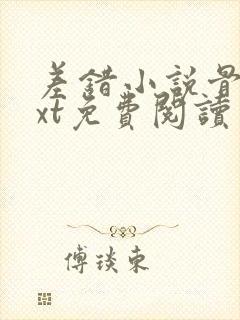 差錯小說骨
xt免費閱讀
傅琰東